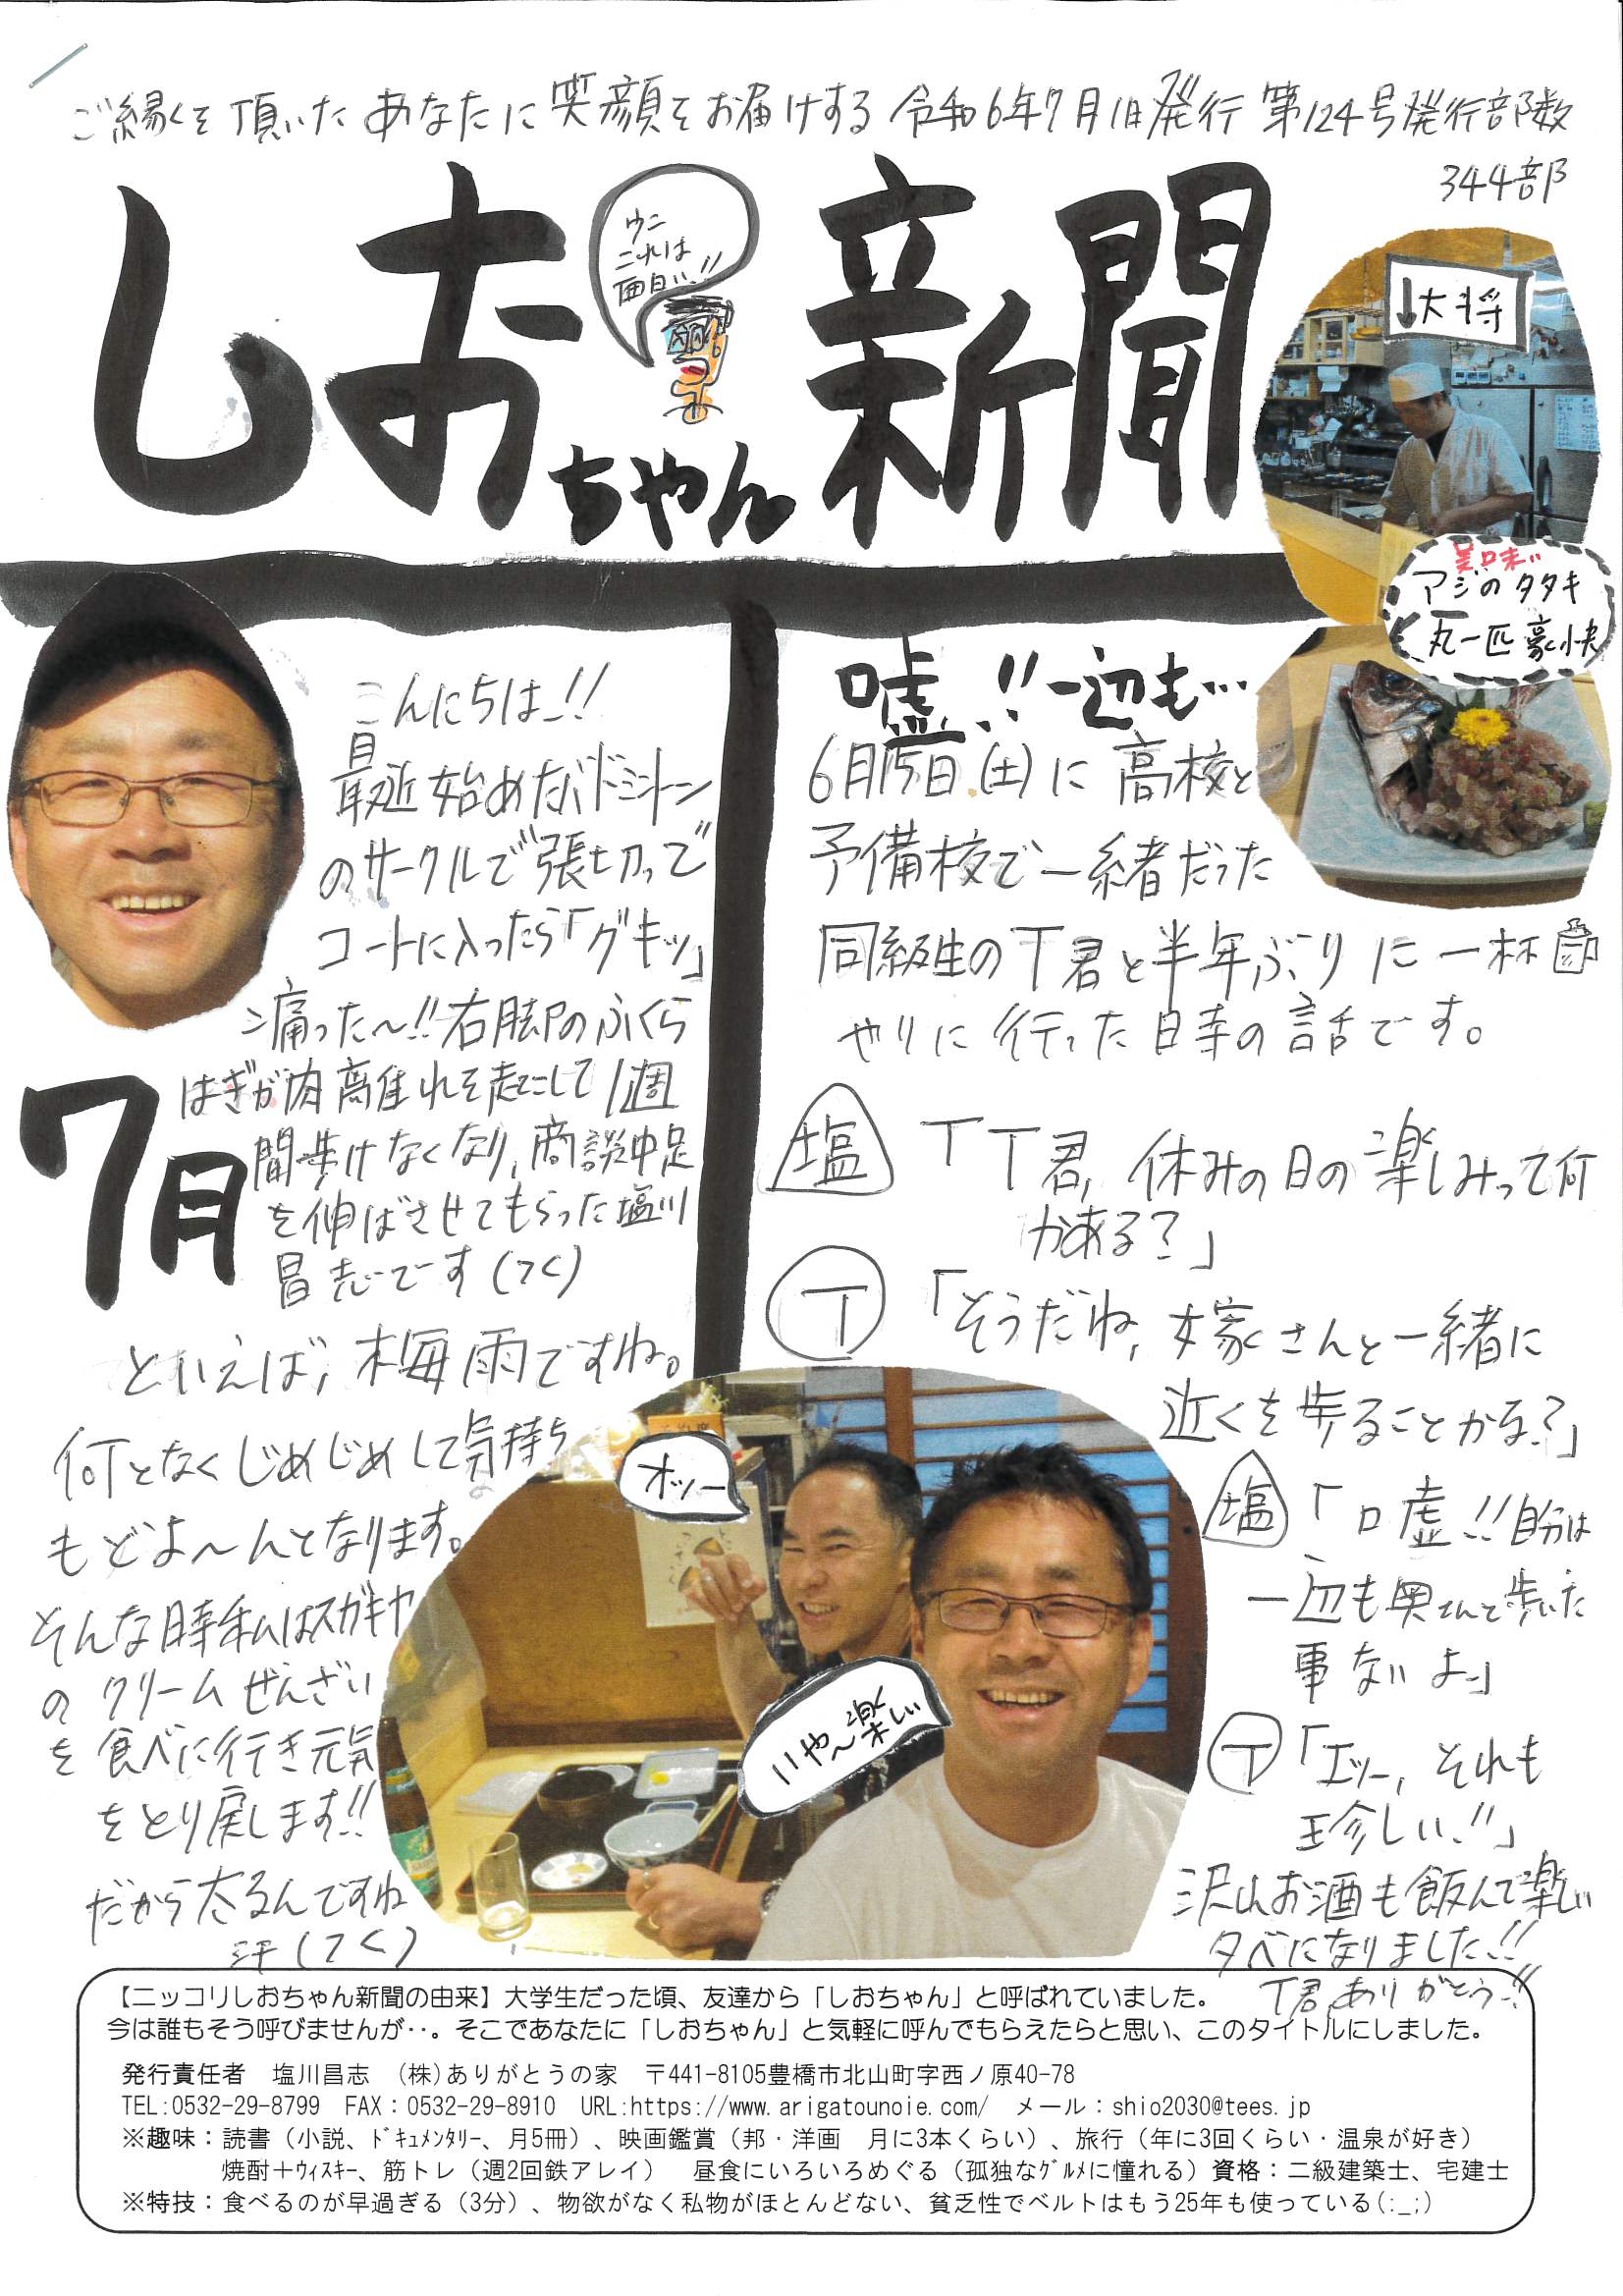 ご縁を頂いたあなたに笑顔をお届けする 令和6年7月1日発行 第124号発行部数
344部
しおちゃん新聞
ウニ
これは
面白い!!
↓大将
美味い
アジのタタキ
丸一匹 豪快
こんにちは!!
最近始めたバドミントン
のサークルで張切って
コートに入ったら「グキッ」
痛った〜!!右脚のふくら
はぎが肉離れを起こして1週
間歩けなくなり、商談中足
を伸ばさせてもらった塩川
昌志です(てく)
7月
といえば、梅雨ですね。
何となくじめじめして気持ち
もどよ〜んとなります。
そんな時私はスガキヤ
のクリームぜんざい
を食べに行き元気
をとり戻します!!
だから太るんですね
汗(てく)
嘘!!一辺も…
6月15日(土)に高校と
予備校で一緒だった
同級生のT君と半年ぶりに一杯
やりに行った時の話です。
塩「T君、休みの日の楽しみって何
かある?」
T「そうだね、嫁さんと一緒に
近くを歩ることかな?」
塩「嘘!!自分は
一辺も奥さんと歩いた
事ないよ」
T「エッー、それも
珍しい!!」
沢山お酒も飲んで楽しい
夕べになりました!!
T君ありがとう!!
オッー
いや〜楽しい
【ニッコリしおちゃん新聞の由来】大学生だった頃、友達から「しおちゃん」と呼ばれていました。
今は誰もそう呼びませんが‥。そこであなたに「しおちゃん」と気軽に呼んでもらえたらと思い、このタイトルにしました。
発行責任者 塩川昌志 (株)ありがとうの家 〒441-8105豊橋市北山町字西ノ原40-78
TEL:0532-29-8799 FAX：0532-29-8910 URL:https://www.arigatounoie.com/ メール：shio2030@tees.jp
※趣味：読書（小説、ﾄﾞｷｭﾒﾝﾀﾘｰ、月5冊）、映画鑑賞（邦・洋画 月に3本くらい）、旅行（年に3回くらい・温泉が好き）
焼酎＋ｳｨｽｷｰ、筋トレ（週2回鉄アレイ） 昼食にいろいろめぐる（孤独なｸﾞﾙﾒに憧れる）資格：二級建築士、宅建士
※特技：食べるのが早過ぎる（3分）、物欲がなく私物がほとんどない、貧乏性でベルトはもう25年も使っている(:_;)